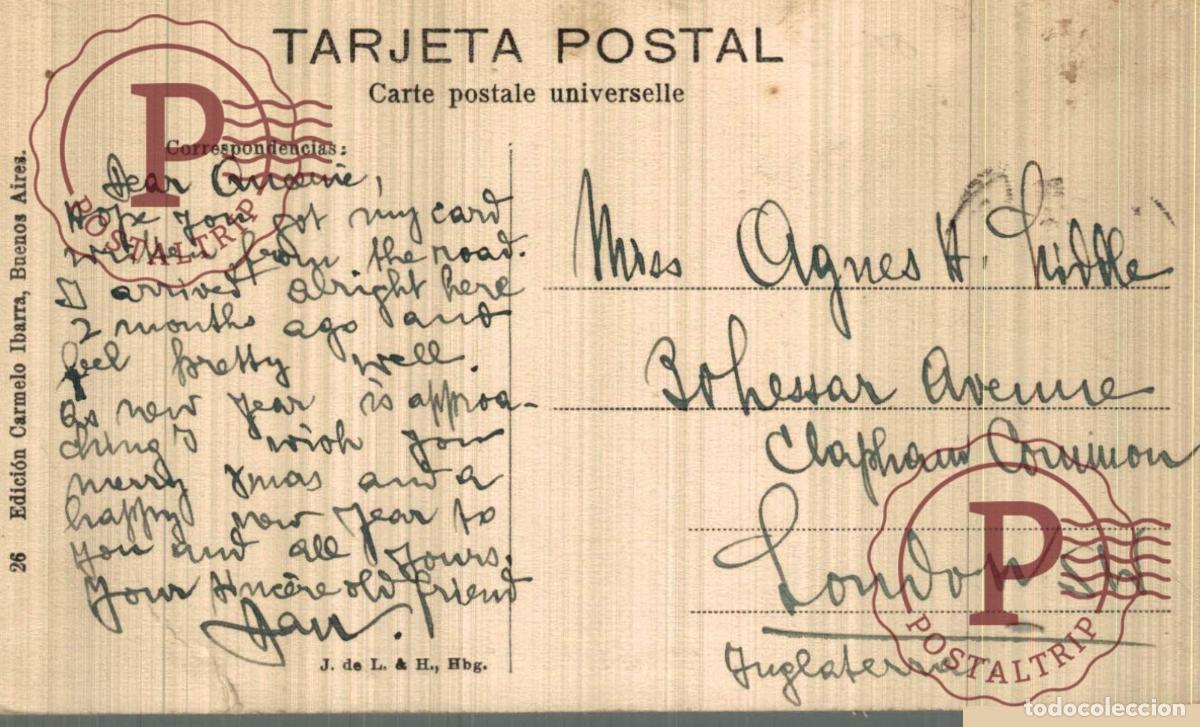 TARJETA POSTAL
Carte postale universelle
Correspondencias:
Dear
Hope you got my card
written from the road.
I arrived alright here
2 months ago and
feel pretty well.
as new year is approa-
ching I wish you
merry xmas and a
happy new year to
you and all yours.
Your sincere old friend
J. de L. & H., Hbg.
Miss Agnes H.
Avenue
Clapham Common
London SW
Inglaterra
26 Edición Carmelo Ibarra, Buenos Aires.
P
POSTALTRIP
P
POSTALTRIP
todocoleccion